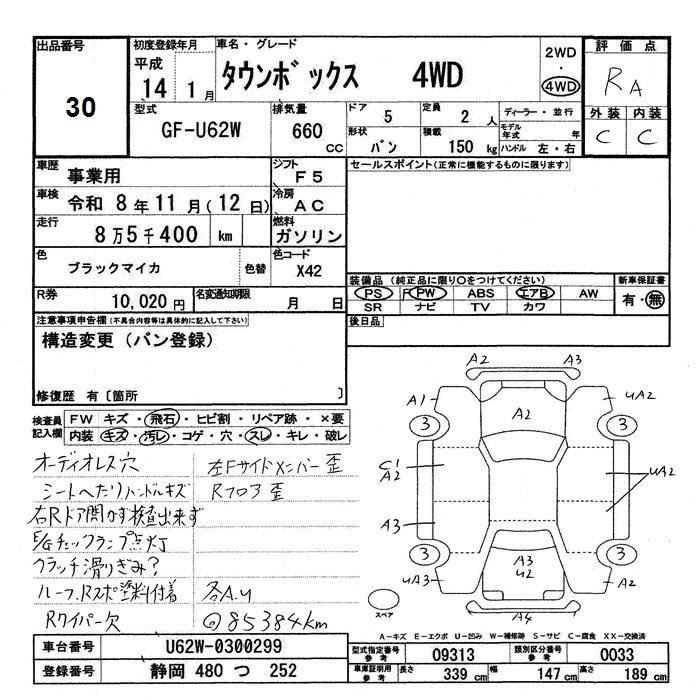 出品番号
30
初度登録年月
平成
14 1月
車名・グレード
タウンボックス 4WD
2WD
・
4WD
評価点
RA
外装 内装
C C
型式
GF-U62W
排気量
660 CC
ドア 5
定員 2人
形状 バン
積載 150kg
ディーラー・並行
モデル年式 年
ハンドル 左・右
車歴 事業用
シフト F5
車検 令和 8年11月(12日)
冷房 AC
走行 8万5千400 km
燃料 ガソリン
色 ブラックマイカ 色替
色コード X42
R券 10,020円
名変通知期限 月 日
セールスポイント(正常に機能するものに限ります)
装備品(純正品に限り○をつけてください)
PS PW ABS エアB AW
SR ナビ TV カワ
新車保証書
有・無
後日品
注意事項申告欄(不具合内容等は具体的に記入して下さい)
構造変更(バン登録)
修復歴 有〔箇所 〕
検査員記入欄
FW キズ・飛石・ヒビ割・リペア跡・×要
内装 キズ・汚レ・コゲ・穴・スレ・キレ・破レ
オーディオレス穴
左Fサイドメンバー歪
シートへたりハンドルキズ
Rフロア歪
右Rドア開かず検査出来ず
E/Gチェックランプ点灯
クラッチ滑りぎみ?
ルーフ.Rスポ塗料付着
各A.U
Rワイパー欠
◎85384km
A2 A3
A1 UA2
3 A2 3
C1
A2
UA2
A3
3 A3
U2 3
UA3 A2
A4
スペア
A-キズ E-エクボ U-凹み W-補修跡 S-サビ C-腐食 XX-交換済
車台番号 U62W-0300299
登録番号 静岡 480 つ 252
型式指定番号参考 09313
類別区分番号参考 0033
車庫証明用参考 長さ 339cm 幅 147cm 高さ 189cm